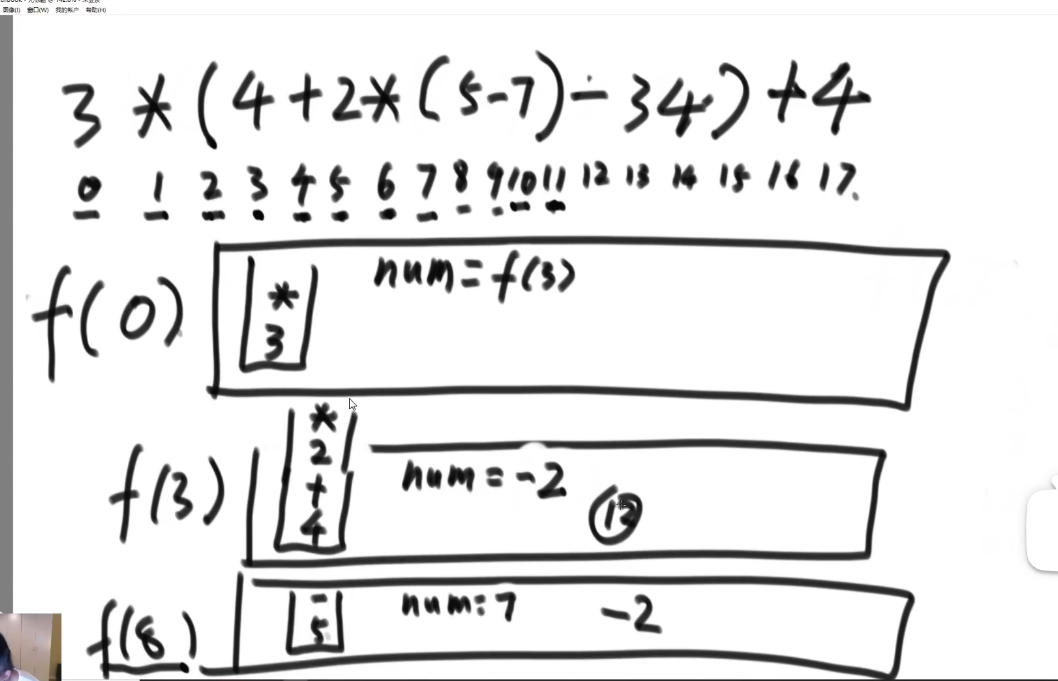 图像(I) 窗口(W) 我的帐户 帮助(H)
3 * (4+2*(5-7)-34)+4
0 1 2 3 4 5 6 7 8 9 10 11 12 13 14 15 16 17.
f(0) * 3 num=f(3)
f(3) * 2 + 4 num=-2 12
f(8) - 5 num:7 -2